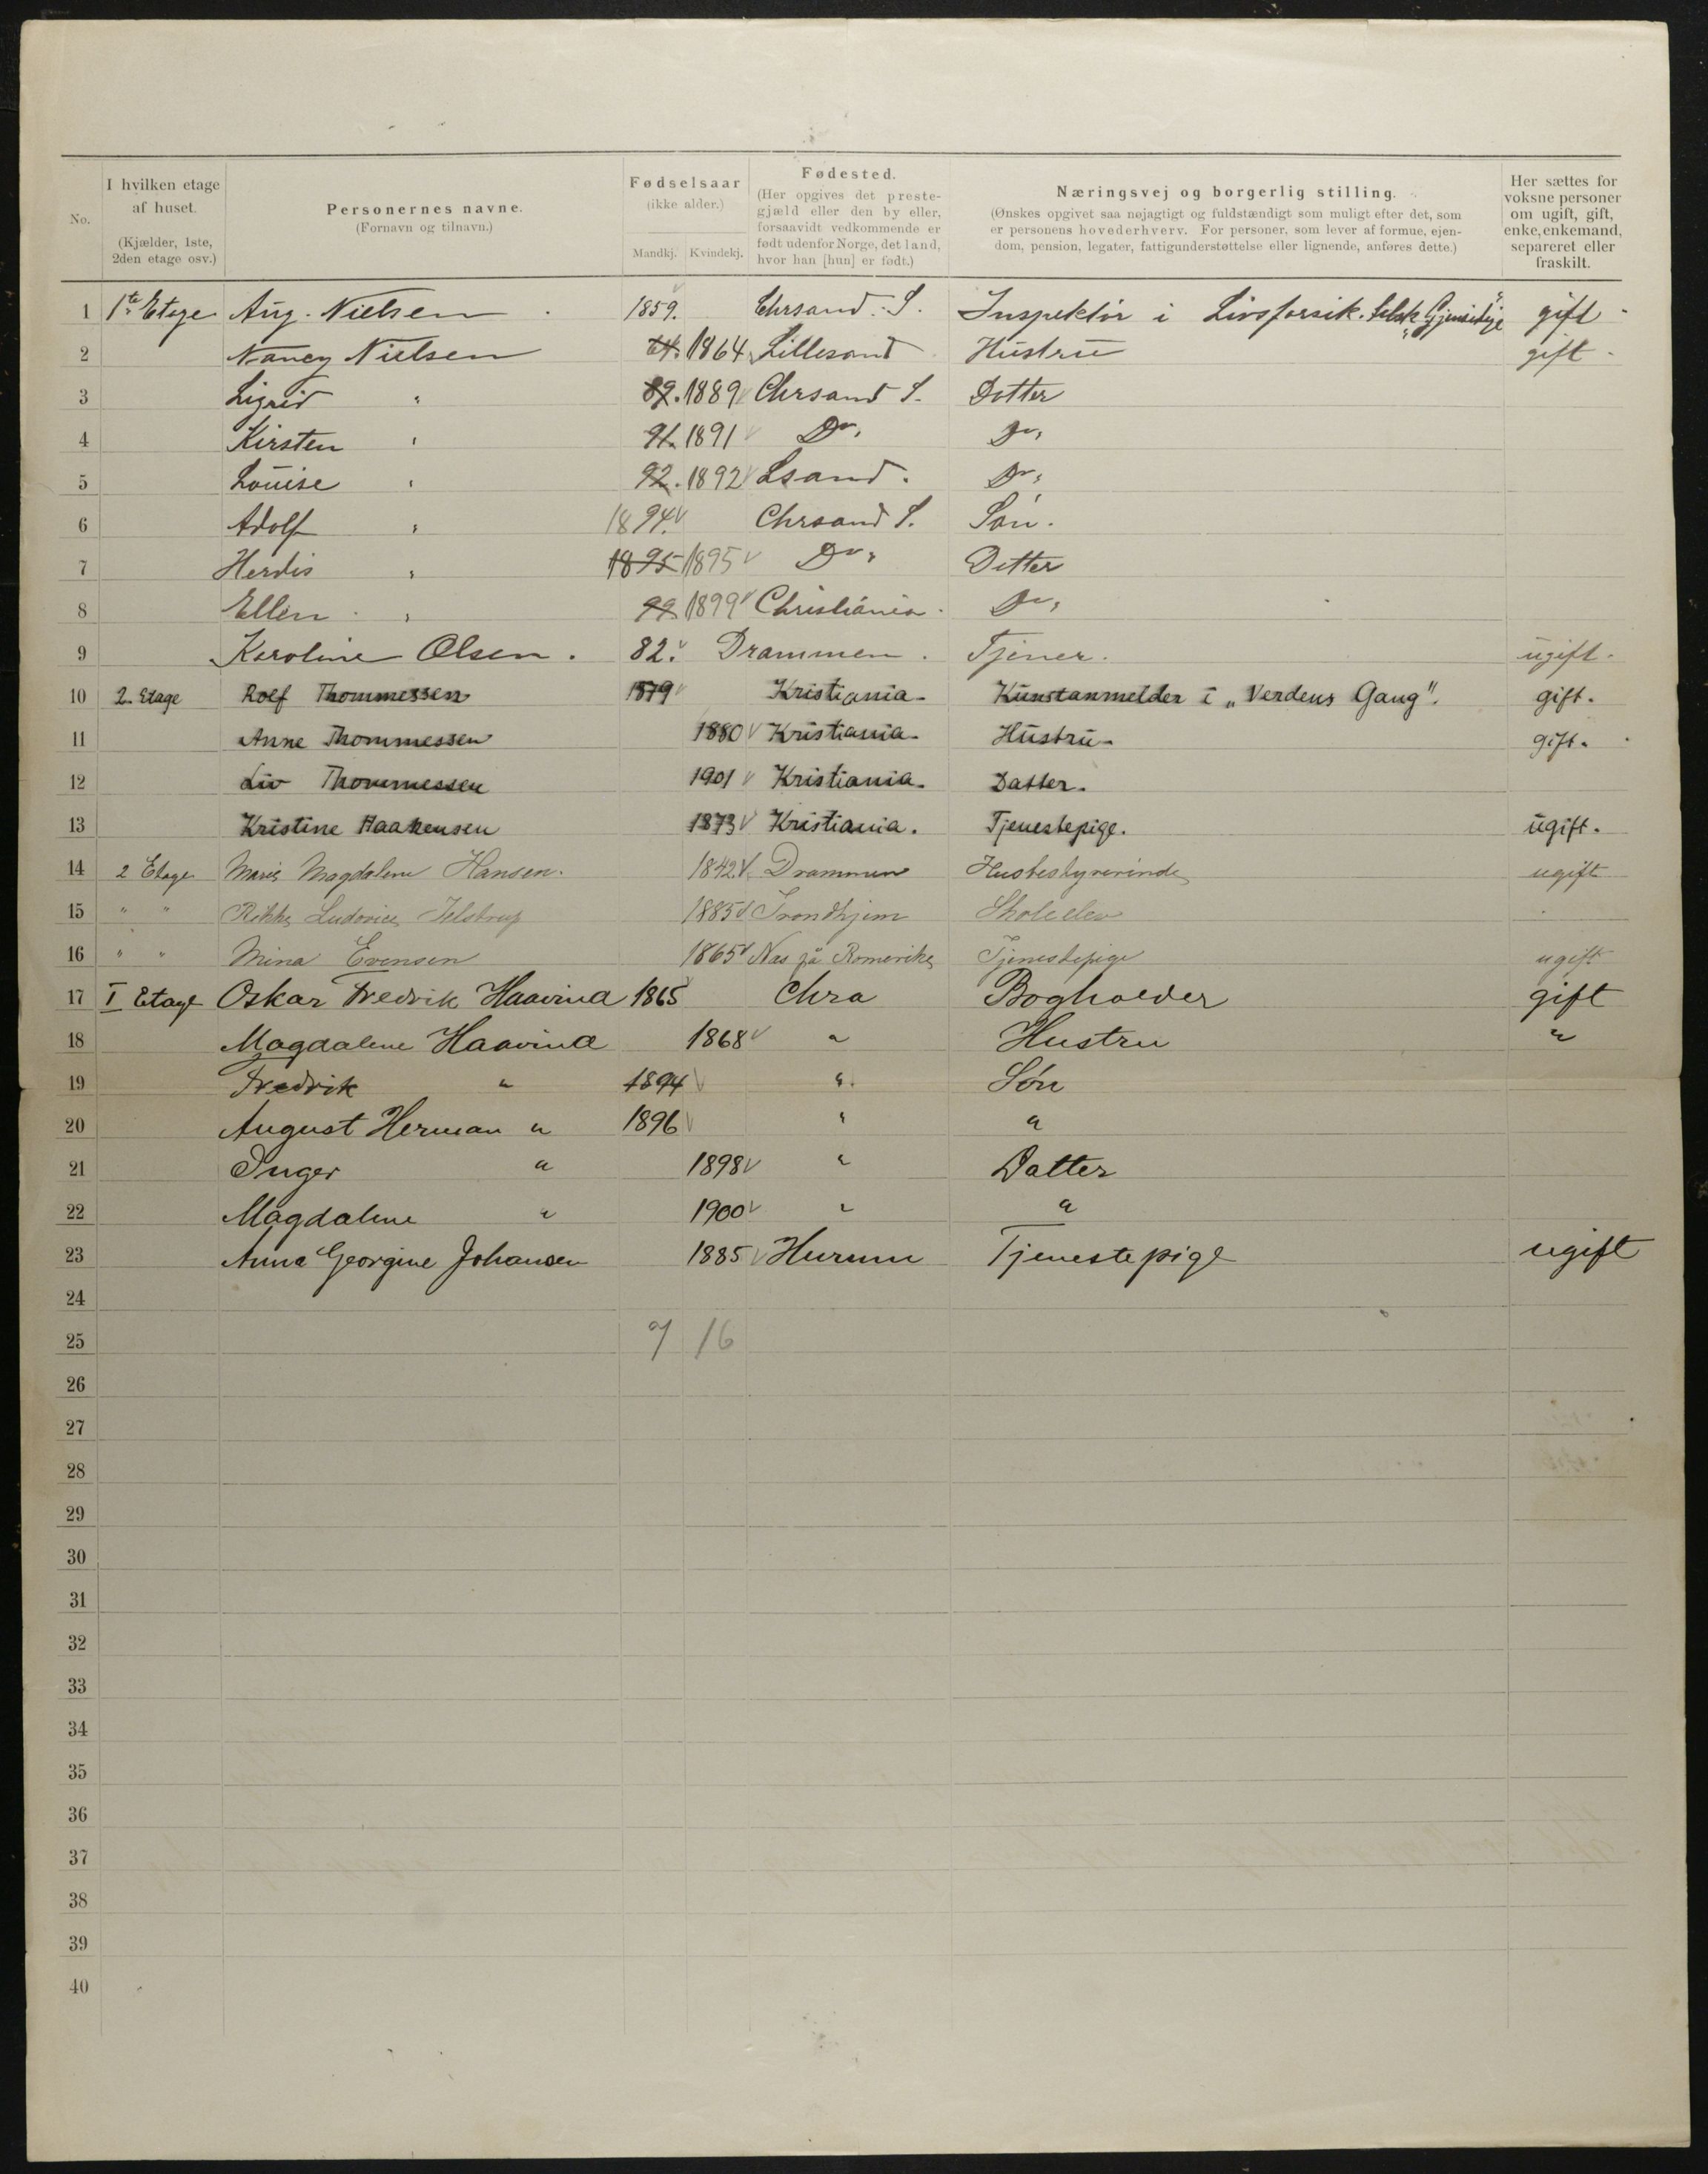 No.
I hvilken etage af huset.
(Kjælder, 1ste, 2den etage osv.)
Personernes navne.
(Fornavn og tilnavn.)
Fødselsaar
(ikke alder.)
Mandkj. Kvindekj.
Fødested.
(Her opgives det prestegjæld eller den by eller, forsaavidt vedkommende er født udenfor Norge, det land, hvor han [hun] er født.)
Næringsvej og borgerlig stilling.
(Ønskes opgivet saa nøjagtigt og fuldstændigt som muligt efter det, som er personens hovederhverv. For personer, som lever af formue, ejendom, pension, legater, fattigunderstøttelse eller lignende, anføres dette.)
Her sættes for voksne personer om ugift, gift, enke, enkemand, separeret eller fraskilt.
1 1ste Etage Aug. Nielsen 1859. Chrsand. S. Inspektør i Livsforsik. selsk. "Gjensidige" gift
2 Nancy Nielsen 64. 1864 Lillesand Hustru gift
3 Sigrid " 89. 1889 Chrsand S. Dotter
4 Kirsten " 91. 1891 Do, Do,
5 Louise " 92. 1892 Lsand. Do,
6 Adolf " 1894. Chrsand S. Søn.
7 Herdis " 1895 1895 Do, Dotter
8 Ellen " 99 1899 Christiania. Do,
9 Karoline Olsen. 82. Drammen. Tjener. ugift.
10 2. Etage Rolf Thommessen 1879 Kristiania. Kunstanmelder i „Verdens Gang". gift.
11 Anne Thommessen 1880 Kristiania. Hustru. gift.
12 Liv Thommessen 1901 Kristiania. Datter.
13 Kristine Haakensen 1873 Kristiania. Tjenestepige. ugift.
14 2 Etage Marie Magdalene Hansen. 1842. Drammen Husbestyrerinde ugift
15 " " Rikke Ludovica Jelstrup 1885 Trondhjem Skoleelev
16 " " Mina Evensen 1865 Nas på Romerike Tjenestepige ugift
17 I Etage Oskar Fredrik Haavind 1865 Chra Bogholder gift
18 Magdalene Haavind 1868 " Hustru "
19 Fredrik " 1894 " Søn
20 August Herman " 1896 " "
21 Inger " 1898 " Datter
22 Magdalene " 1900 " "
23 Anna Georgine Johansen 1885 Hurum Tjenestepige ugift
24
25 7 16
26
27
28
29
30
31
32
33
34
35
36
37
38
39
40